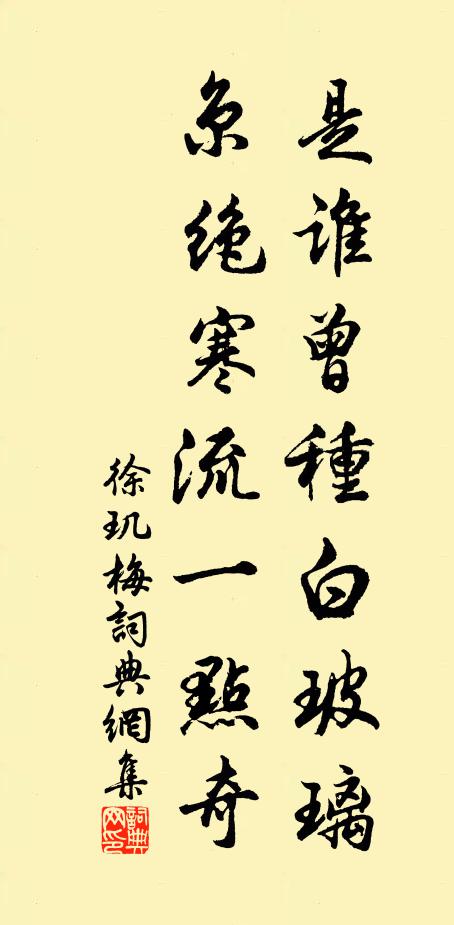 是誰曾種白玻璃
京絶寒流一點奇
徐玑梅詞典網集
詞典網印